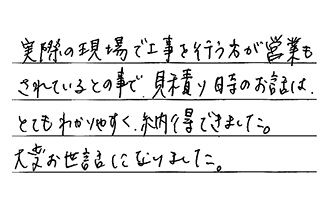 実際の現場で工事を行う方が営業も
されているとの事で、見積り時のお話は、
とてもわかりやすく、納得できました。
大変お世話になりました。